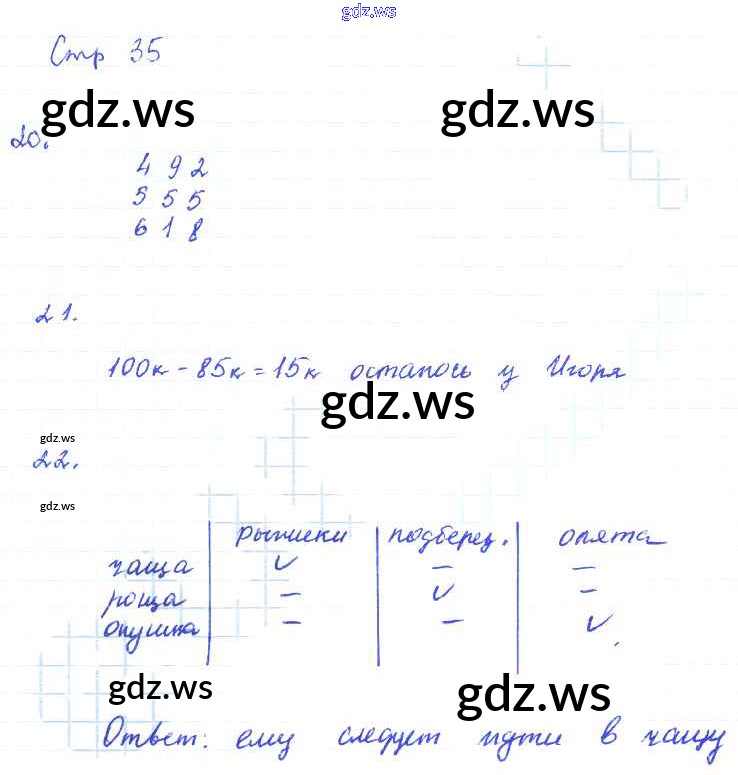 gdz.ws
Стр 35
gdz.ws gdz.ws
20.
4 9 2
5 5 5
6 1 8
21.
100к - 85к = 15к осталось у Игоря
gdz.ws
gdz.ws
22.
gdz.ws
рыжики подберез. опята
чаща ✓ — —
роща — ✓ —
опушка — — ✓.
gdz.ws gdz.ws
Ответ: ему следует идти в чащу